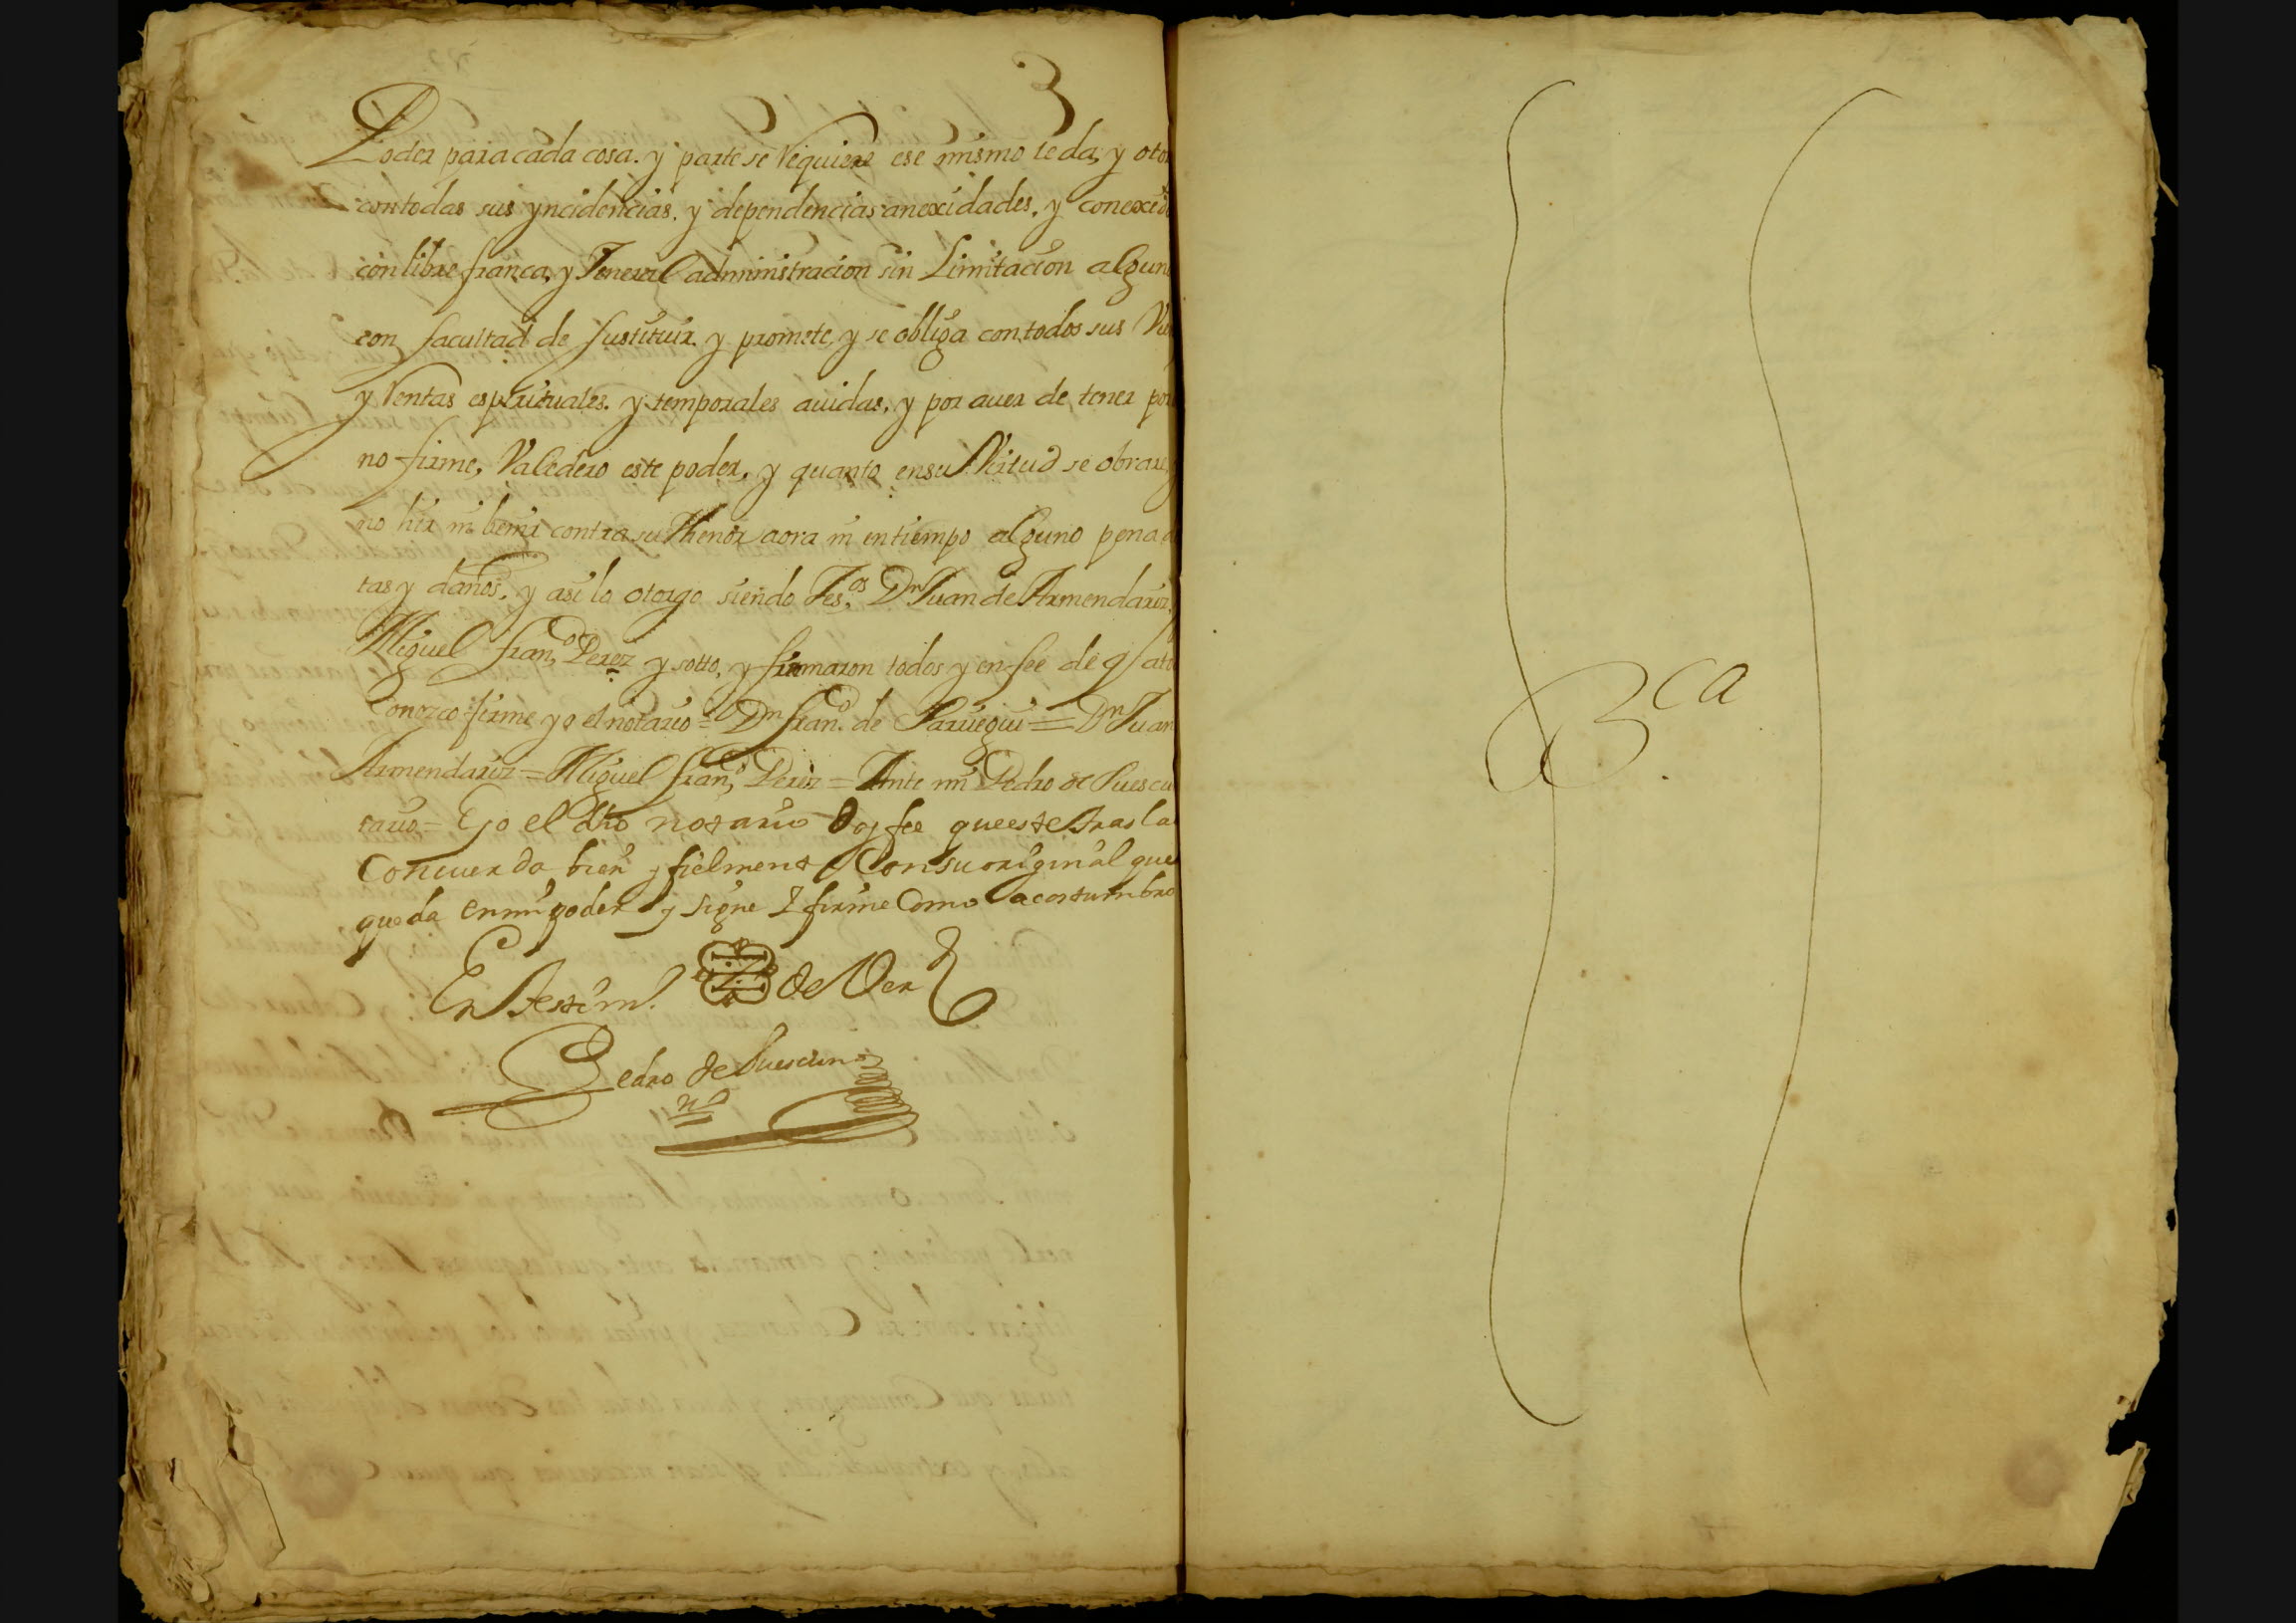 3
Poder para cada cosa. y parte se Requiere ese mismo le da, y oto
con todas sus yncidencias. y dependencias anexidades, y conexid
con libre franca, y Jeneral administracion sin Limitacion algun
con facultad de sustituir. y promete, y se obliga con todos sus
y Rentas espirituales. y temporales auidas, y por auer de tener por
no firme, Valedero este poder, y quanto en su Virtud se obrare
no hir ni benir contra su thenor aora ni en tiempo alguno pena
tas y daños, y asi lo otorgo siendo Tes.os Dn Juan de Armendariz.
Miguel fran.co Perez y sotto, y firmaron todos y en fee de q
Conozco firme yo el notario = Dn fran.co de = Dn Juan
Armendariz = Miguel fran.co Perez = Ante mi Pedro de Suescu
tario = E yo el dho notario Doy fee que este trasla
Concuerda bien y fielmente Con su original que
queda en mi poder y signe E firme Como acostumbro
En testim.o de Ver
Pedro de Suescun
no
B.ca